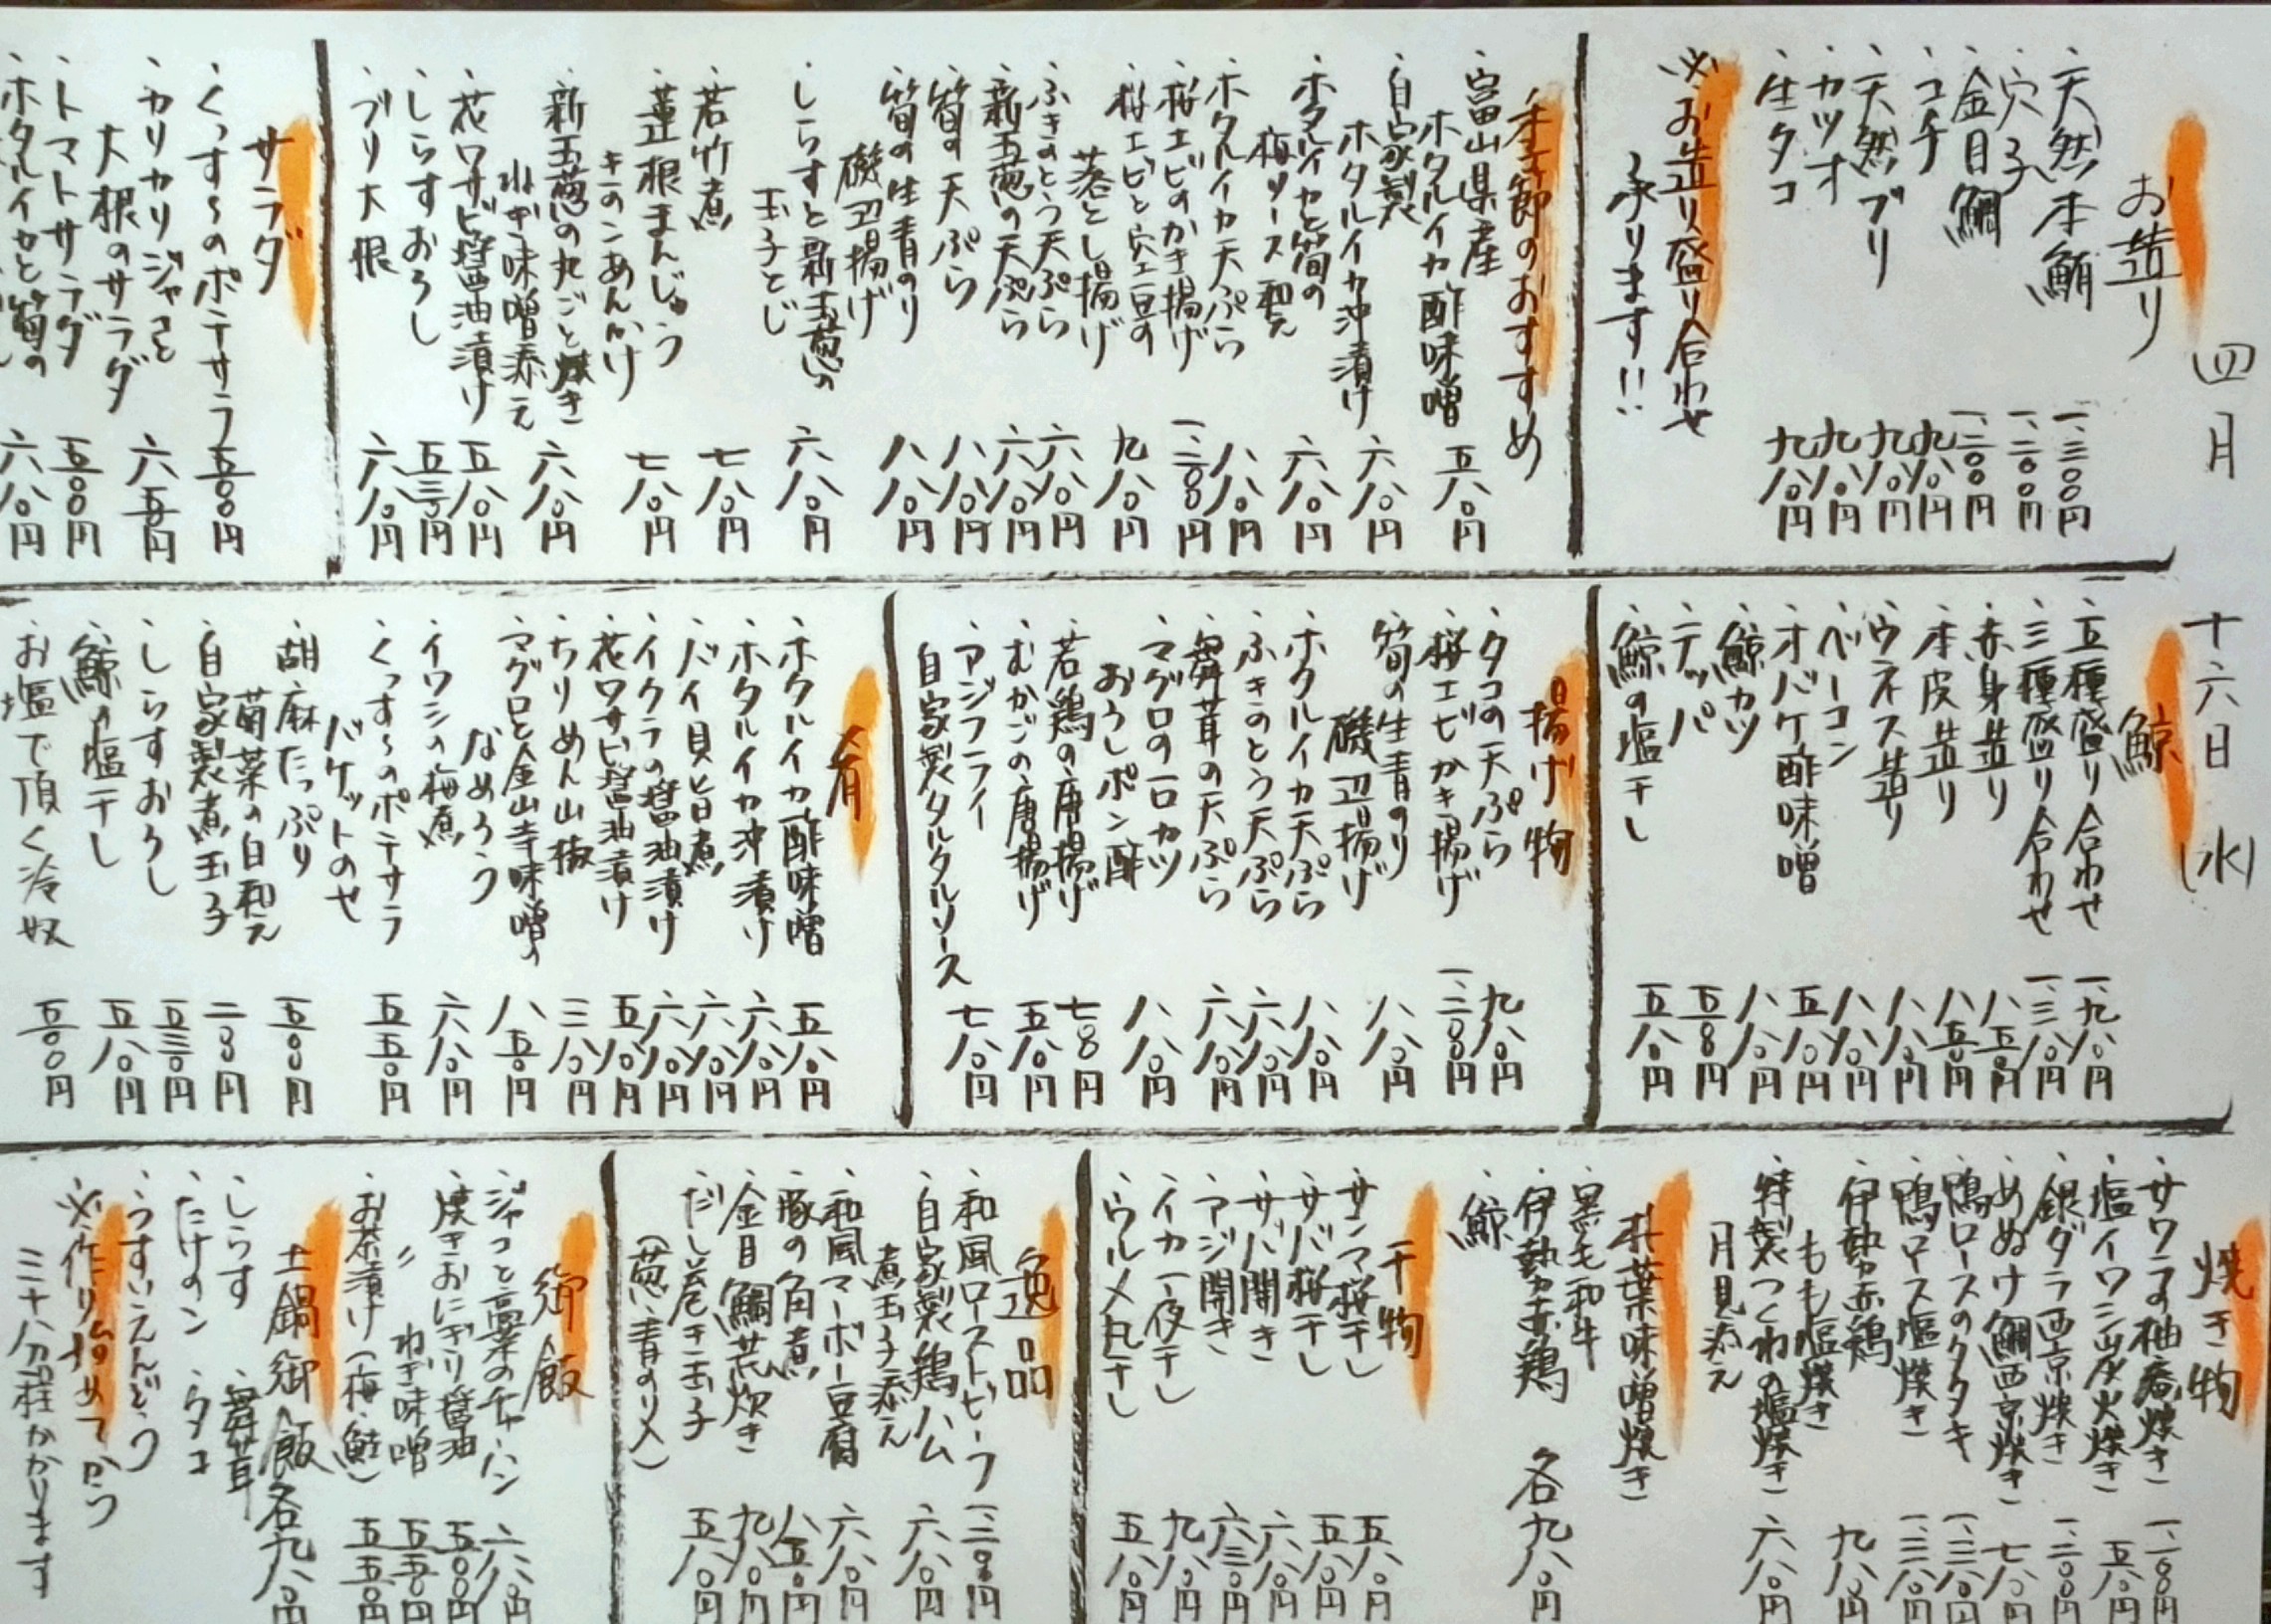 四月
十六日(水)
お造り
、天然本鮪 一、三〇〇円
、穴子 一、二〇〇円
、金目鯛 一、二〇〇円
、コチ 九八〇円
、天然ブリ 九八〇円
、カツオ 九八〇円
、生タコ 九八〇円
※お造り盛り合わせ
承ります!!
季節のおすすめ
、富山県産
ホタルイカ酢味噌 五八〇円
、自家製
ホタルイカ沖漬け 六八〇円
、ホタルイカと筍の
梅ソース和え 六八〇円
、ホタルイカ天ぷら 八八〇円
、桜エビのかき揚げ 一、二八〇円
、桜エビと空豆の
落とし揚げ 九八〇円
、ふきのとう天ぷら 六八〇円
、新玉葱の天ぷら 六八〇円
、筍の天ぷら 八八〇円
、筍の生青のり
磯辺揚げ 八八〇円
、しらすと新玉葱の
玉子とじ 六八〇円
、若竹煮 七八〇円
、蓮根まんじゅう
キノコあんかけ 七八〇円
、新玉葱の丸ごと焼き
肉味噌添え 六八〇円
、花ワサビ醤油漬け 五八〇円
、しらすおろし 五三〇円
、ブリ大根 六八〇円
サラダ
、くっす〜のポテサラ 五〇〇円
、カリカリジャコと
大根のサラダ 六五〇円
、トマトサラダ 五〇〇円
、ホタルイカと筍の 六八〇円
鯨
、五種盛り合わせ 一、九八〇円
、三種盛り合わせ 一、三八〇円
、赤身造り 八五〇円
、本皮造り 八五〇円
、ウネス造り 八八〇円
、ベーコン 八八〇円
、オバケ酢味噌 五八〇円
、鯨カツ 八八〇円
、テッパ 五八〇円
、鯨の塩干し 五八〇円
揚げ物
、タコの天ぷら 九八〇円
、桜エビかき揚げ 一、二八〇円
、筍の生青のり
磯辺揚げ 八八〇円
、ホタルイカ天ぷら 八八〇円
、ふきのとう天ぷら 六八〇円
、舞茸の天ぷら 六八〇円
、マグロの一口カツ
おろしポン酢 八八〇円
、若鶏の唐揚げ 七八〇円
、むかごの唐揚げ 五八〇円
、アジフライ
自家製タルタルソース 七八〇円
肴
、ホタルイカ酢味噌 五八〇円
、ホタルイカ沖漬け 六八〇円
、バイ貝旨煮 六八〇円
、イクラの醤油漬け 六八〇円
、花ワサビ醤油漬け 五八〇円
、ちりめん山椒 三八〇円
、マグロと金山寺味噌の
なめろう 八五〇円
、イワシの梅煮 六八〇円
、くっす〜のポテサラ
バケットのせ 五五〇円
、胡麻たっぷり
菊菜の白和え 五〇〇円
、自家製煮玉子 二〇〇円
、しらすおろし 五三〇円
、鯨の塩干し 五八〇円
、お塩で頂く冷奴 五〇〇円
焼き物
、サワラの柚香焼き 一、一〇〇円
、塩イワシ炭火焼き 五八〇円
、銀ダラ西京焼き 一、二〇〇円
、めぬけ鯛西京焼き 七八〇円
、鴨ロースのタタキ 一、三八〇円
、鴨ロース塩焼き 一、三八〇円
、伊勢赤鶏
もも塩焼き 九八〇円
、特製つくねの塩焼き
月見添え 六八〇円
朴葉味噌焼き
、黒毛和牛
、伊勢赤鶏 各九八〇円
、鯨
干物
、サンマ桜干し 五八〇円
、サバ桜干し 五八〇円
、サバ開き 六八〇円
、アジ開き 六三〇円
、イカ一夜干し 九八〇円
、ウルメ丸干し 五八〇円
逸品
、和風ローストビーフ 一、二八〇円
、自家製鶏ハム
煮玉子添え 六八〇円
、和風マーボー豆腐 六八〇円
、豚の角煮 八五〇円
、金目鯛荒炊き 九八〇円
、だし巻き玉子
(葱、青のり〆) 五八〇円
御飯
、ジャコと高菜のチャーハン 六八〇円
、焼きおにぎり醤油 五〇〇円
〃 ねぎ味噌 五五〇円
、お茶漬け(梅、鮭) 五五〇円
土鍋御飯 各九八〇円
、しらす 、舞茸
、たけのこ 、タコ
、うすいえんどう
※作り始めてから
三十八分程かかります